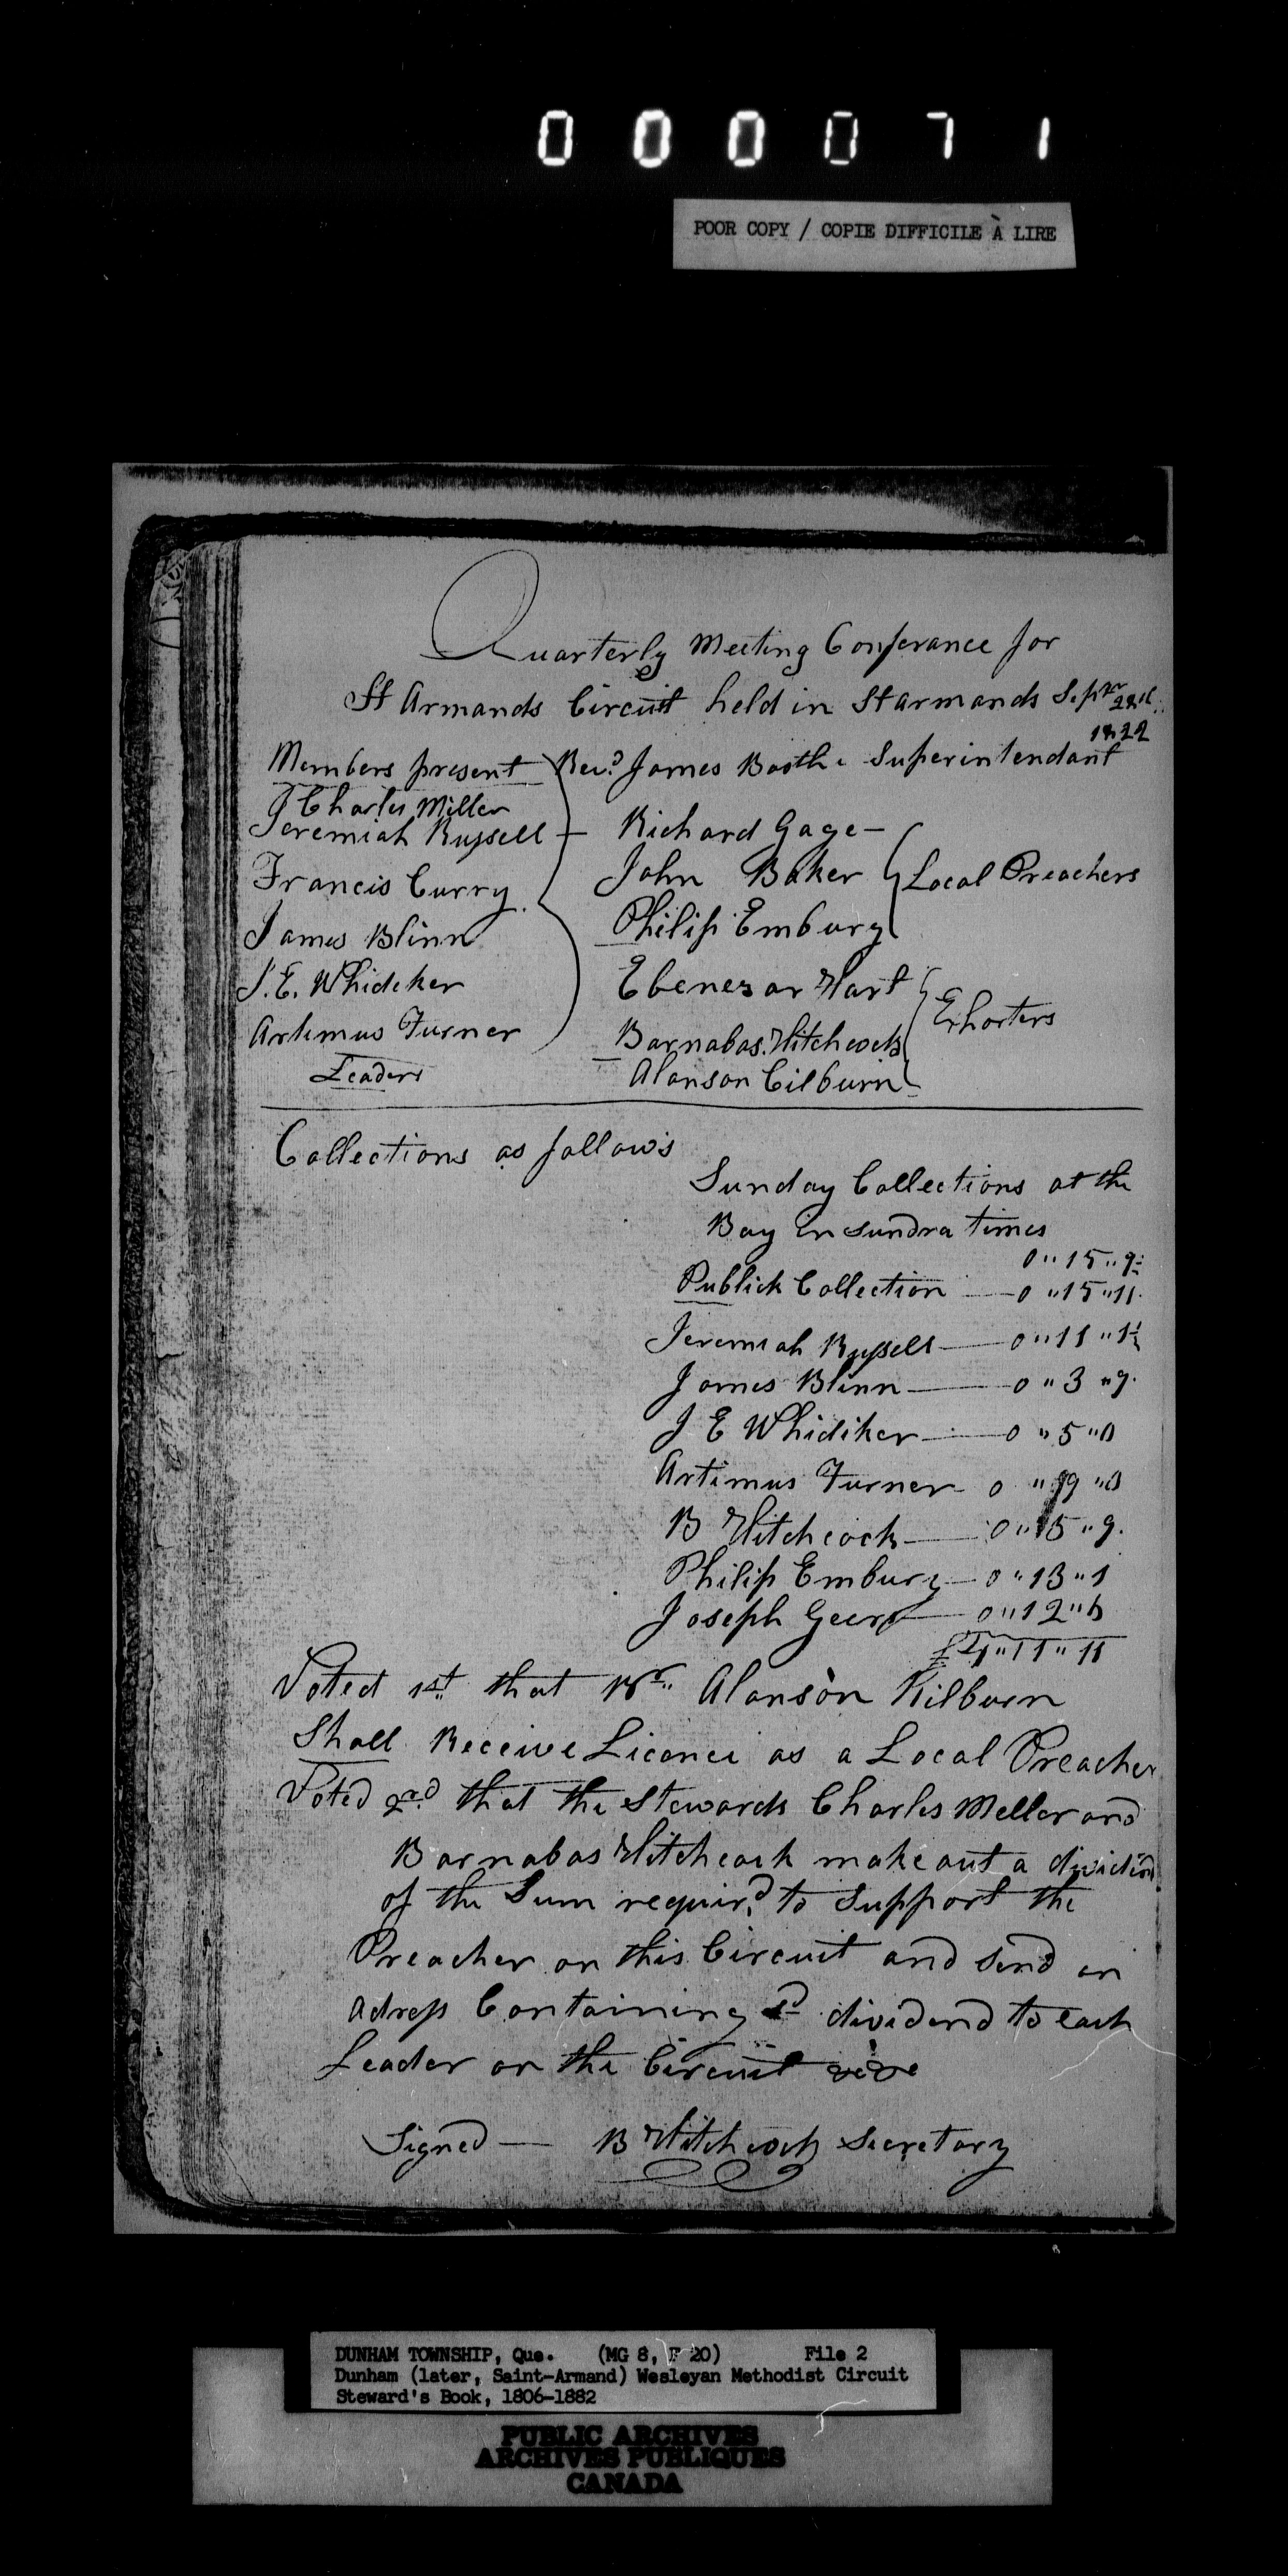 000071
POOR COPY / COPIE DIFFICILE À LIRE
Quarterly Meeting Conferance for
St Armands Circuit held in St armands Sepr
1822
Members present Revd James Booth Superintendant
Charles Miller
Jeremiah Russell — Richard Gage —
Francis Curry John Baker Local Preachers
James Blinn Philip Embury
J. E. Whideker Ebenezar Hart
Artemus Turner Barnabas Hitchcock Exhorters
Leaders Alanson Cilburn
Collections as follows
Sunday Collections at the
Bay in sundra times
0 " 15 " 9
Publick Collection — 0 " 15 " 11
Jeremiah Russell — 0 " 11 " 1½
James Blinn — 0 " 3 " 9
J E Whidiker — 0 " 5 " 0
Artimus Turner 0 " 19 " 0
B Hitchcock — 0 " 15 " 9
Philip Embury — 0 " 13 " 1
Joseph Geer — 0 " 12 " 6
£ " 11 " 11
Voted 1st that Br Alanson Kilburn
Shall Receive Licence as a Local Preacher
Voted 2nd that the Stewards Charles Meller and
Barnabas Hitchcock make out a dividend
of the Sum requird to Support the
Preacher on this Circuit and Send an
adress Containing sd dividend to each
Leader on the Circuit
Signed — B Hitchcock Secretary
DUNHAM TOWNSHIP, Que. (MG 8, F 20) File 2
Dunham (later, Saint-Armand) Wesleyan Methodist Circuit
Steward's Book, 1806-1882
PUBLIC ARCHIVES
ARCHIVES PUBLIQUES
CANADA